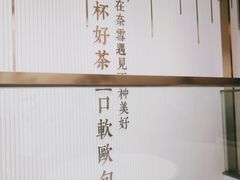 杯好茶一口軟歐包
在奈雪遇見兩種美好